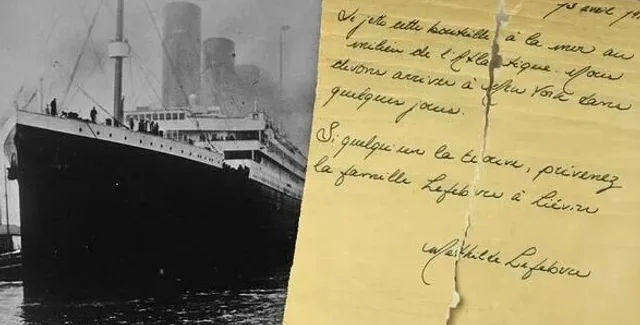 13 avril 19
Je jette cette bouteille à la mer au
milieu de l'Atlantique. Nous
devons arriver à New York dans
quelques jours.
Si quelqu'un la trouve, prévenez
la famille Lefebvre à Liévin
Mathilde Lefebvre